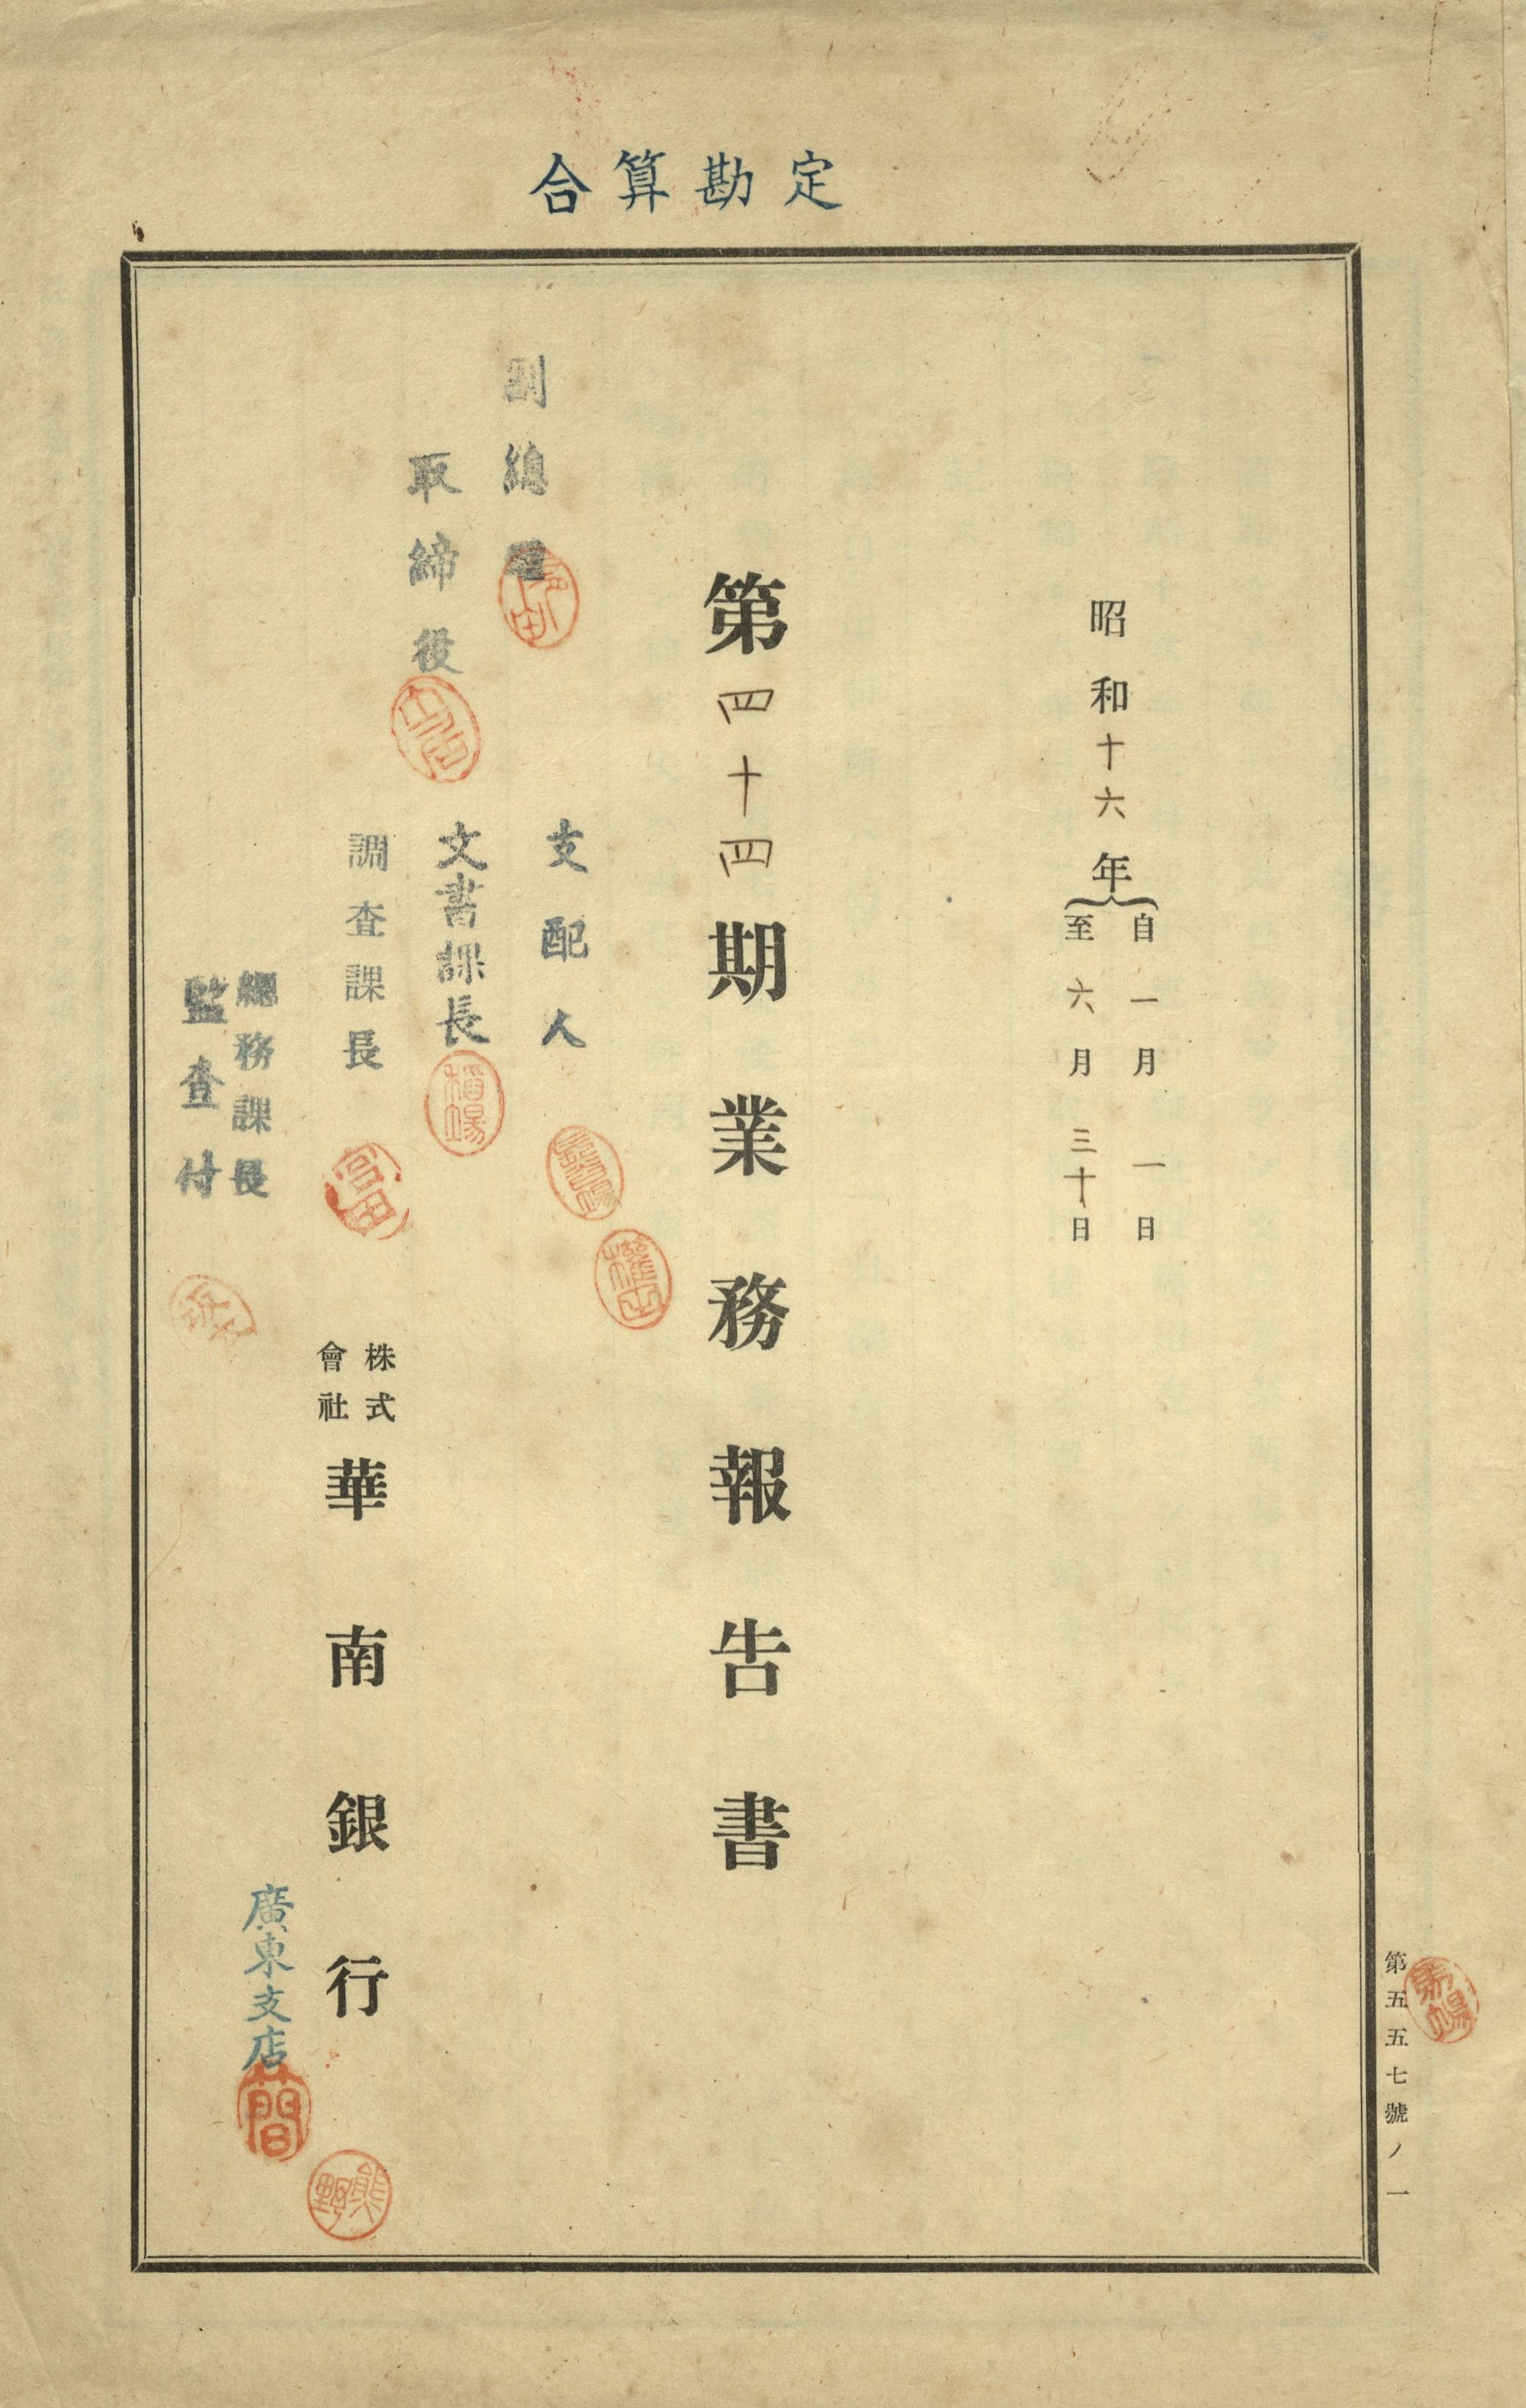 合算勘定
昭和十六年
自一月一日
至六月三十日
第四十四期業務報告書
副總理
取締役
支配人
文書課長
稻場
權田
調査課長
富田
總務課長
監査付
株式會社
華南銀行
廣東支店
簡
熊野
第五五七號ノ一